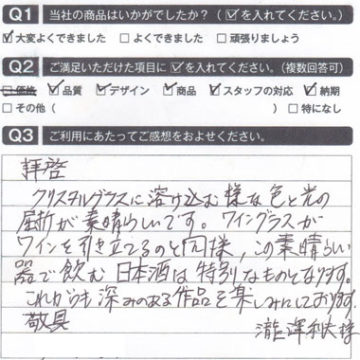 Q1 当社の商品はいかがでしたか？（☑を入れてください。）
☑大変よくできました □よくできました □頑張りましょう
Q2 ご満足いただけた項目に☑を入れてください。（複数回答可）
□価格 ☑品質 ☑デザイン ☑商品 ☑スタッフの対応 ☑納期
□その他（ ） □特になし
Q3 ご利用にあたってご感想をおよせください。
拝啓
クリスタルグラスに溶け込む様な色と光の
屈折が素晴らしいです。ワイングラスが
ワインを引き立てるのと同様、この素晴らしい
器で飲む日本酒は特別なものとなります。
これからも深みのある作品を楽しみにしております。
敬具